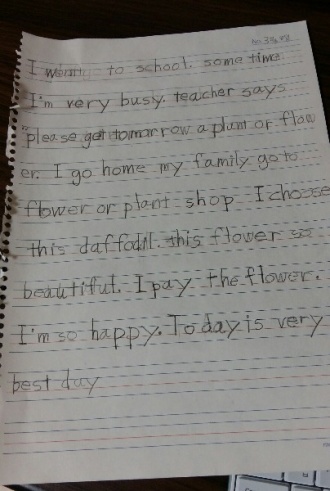 I went to school. some time
I'm very busy. teacher says
"please get tomorrow a plant or flow
er. I go home my family go to
flower or plant shop I choose
this daffodil. this flower is
beautiful. I pay the flower.
I'm so happy. Today is very
best day